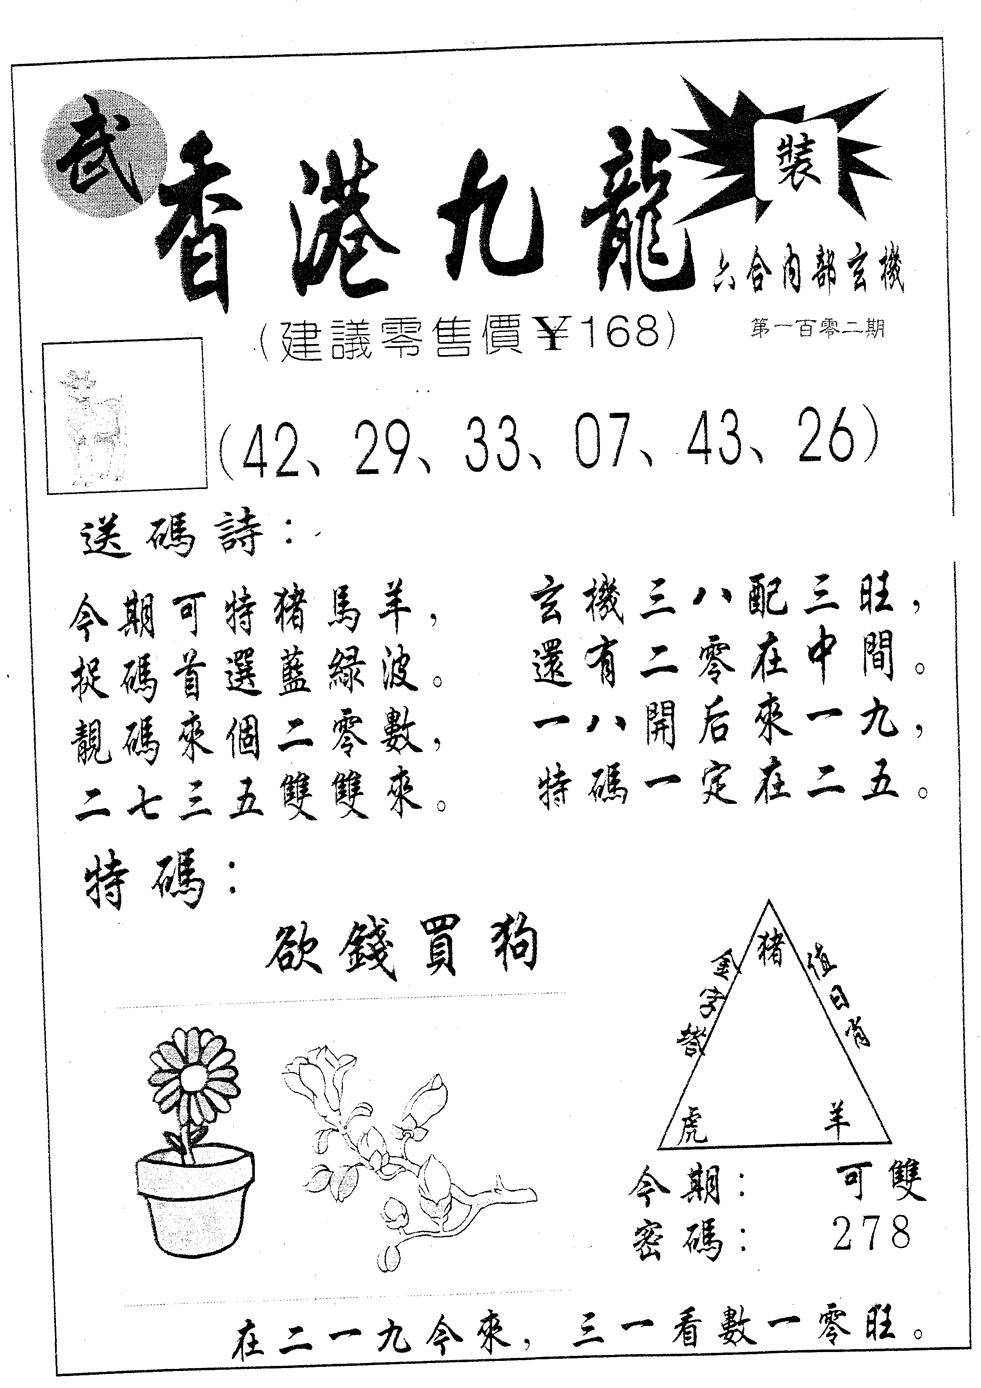 武
香港九龍
裝
六合内部玄機
(建議零售價¥168)
第一百零二期
(42、29、33、07、43、26)
送碼詩：
今期可特猪馬羊，
捉碼首選藍綠波。
靚碼來個二零數，
二七三五雙雙來。
玄機三八配三旺，
還有二零在中間。
一八開后來一九，
特碼一定在二五。
特碼：
欲錢買狗
金字
猪
值日肖
虎
羊
今期：可雙
密碼：278
在二一九今來，三一看數一零旺。